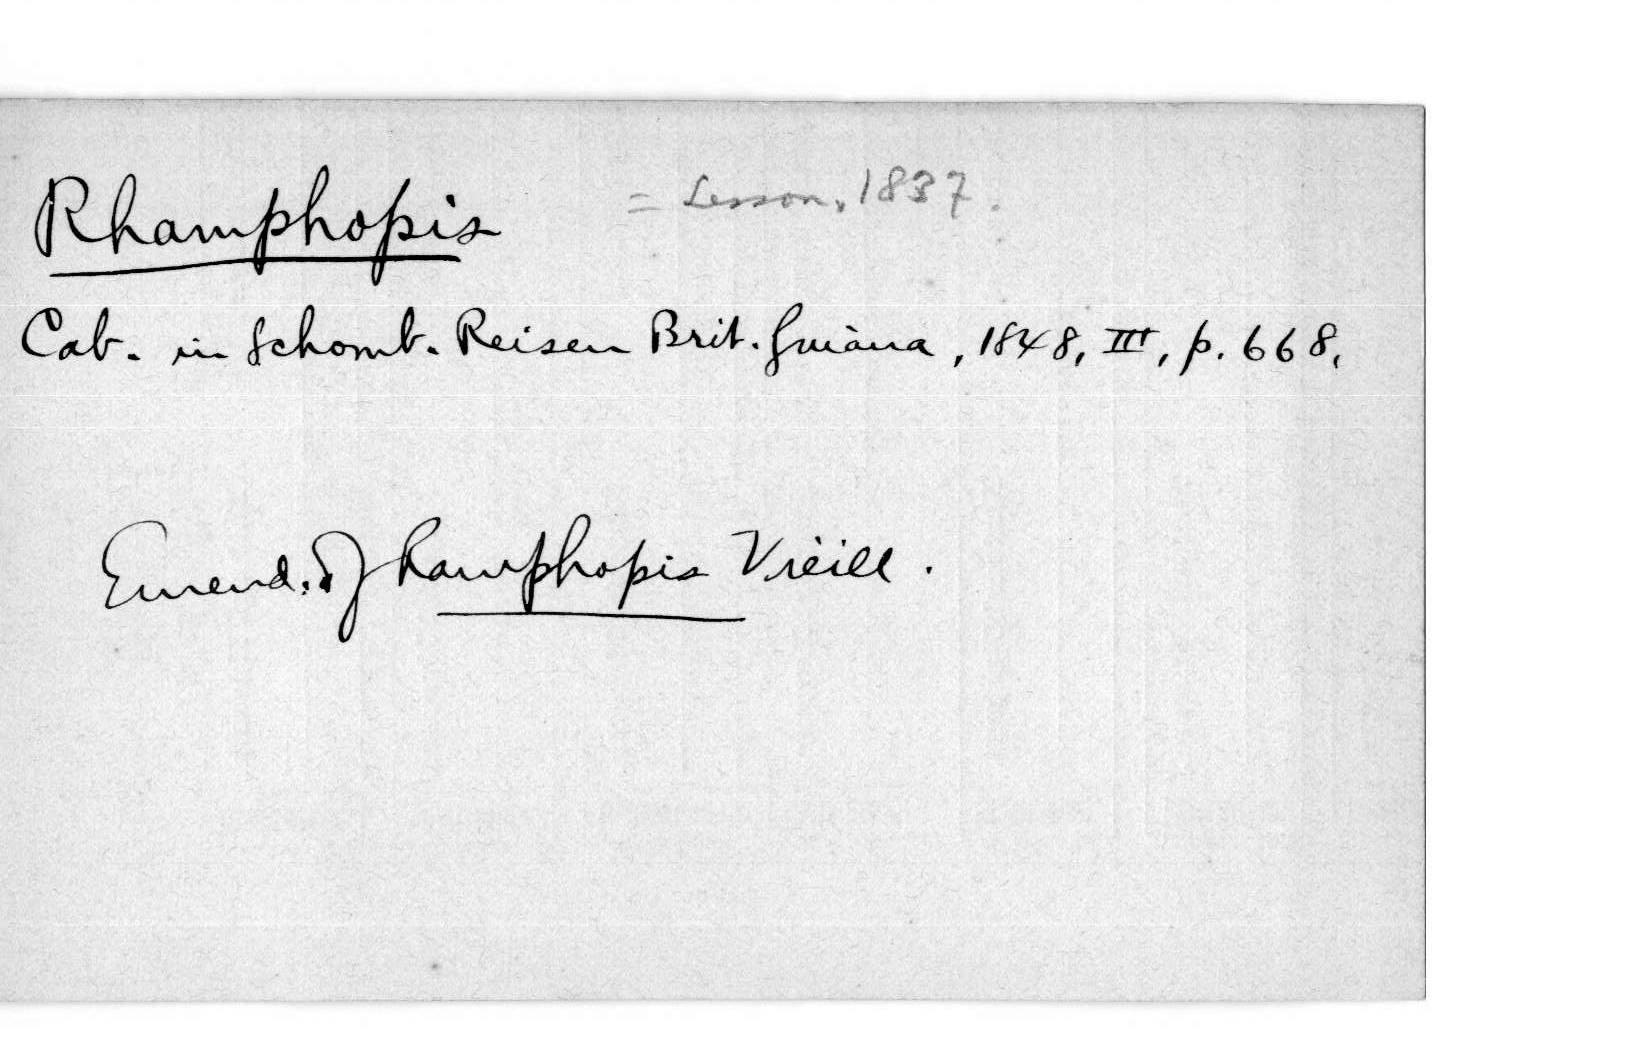 Rhamphopis = Lesson, 1837.
Cab. in Schomb. Reisen Brit. Guiana, 1848, III, p. 668,
Emend. of Ramphopis Vieill.